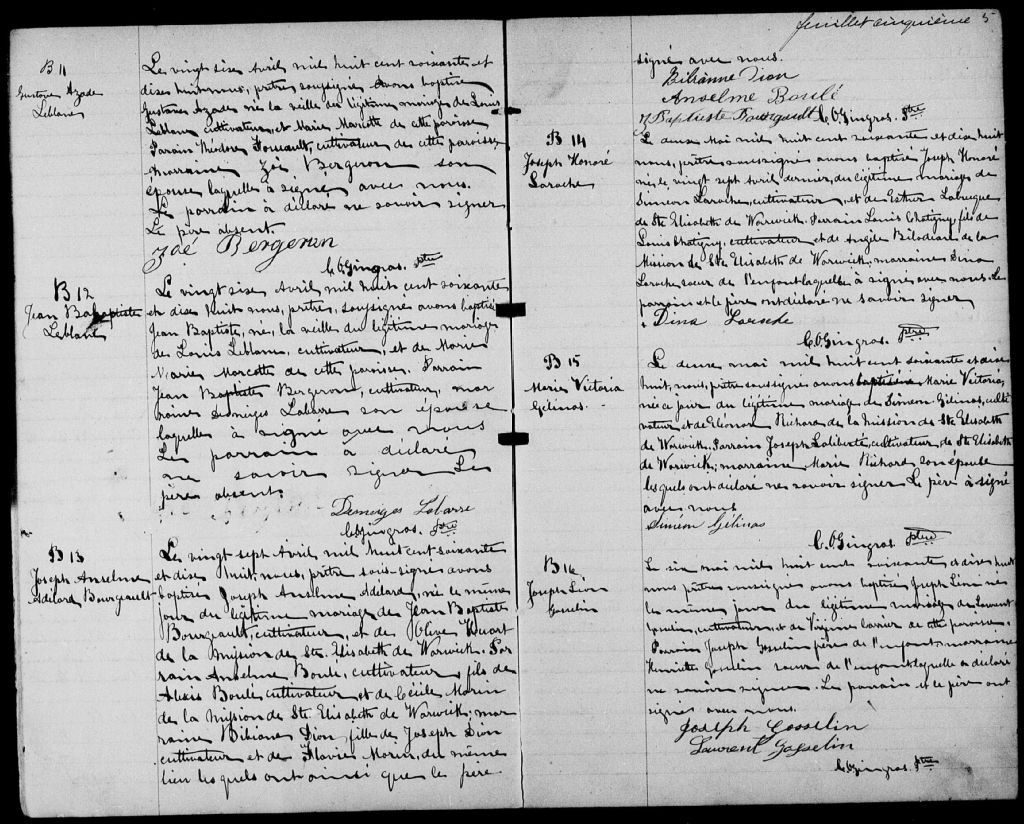 B 11
Gustave Azade
Leblanc
Le vingt sixe Avril mil huit cent soixante et
dixe huit nous, prêtre, soussigné avons baptisé
Gustave Azade né la veille du légitime mariage de Louis
Leblanc cultivateur, et Marie Marcotte de cette paroisse
Parrain Théodore Foucault, cultivateur de cette paroisse
marraine Zoé Bergeron son
épouse laquelle à signé avec nous.
Le parrain à déclaré ne savoir signer
Le père absent.
Zoé Bergeron
C. O. Gingras. Ptre
B 12
Jean Baptiste
Leblanc
Le vingt sixe Avril mil huit cent soixante
et dixe huit nous, prêtre, soussigné avons baptisé
Jean Baptiste, né, la veille du légitime mariage
de Louis Leblanc, cultivateur, et de Marie
Marie Marcotte de cette paroisse. Parrain
Jean Baptiste Bergeron, cultivateur, mar
raine Demerges Labarre son épouse
laquelle à signé avec nous
Le parrain à déclaré
ne savoir signer Le
père absent.
Demerges Labarre
C. O. Gingras. Ptre
B 13
Joseph Anselme
Adélard Bourgeault
Le vingt sept Avril mil huit cent soixante
et dixe huit, nous, prêtre sous-signé avons
baptisé Joseph Anselme Adélard, né le même
jour du légitime mariage de Jean Baptiste
Bourgeault, cultivateur, et de Olive Huart
de la mission de Ste Elisabeth de Warwick. Par
rain Anselme Boulé, cultivateur, fils de
Alexis Boulé cultivateur et de Cécile Morin
de la mission de Ste Elisabeth de Warwick; mar
raine Bibiane Dion, fille de Joseph Dion
cultivateur et de Flavie Morin, du même
lieu lesquels ont ainsi que le père
feuillet cinquième 5
signé avec nous.
Bibianne Dion
Anselme Boulé
J Baptiste Bourgault C. O. Gingras. Ptre
B 14
Joseph Honoré
Laroche
Le deux Mai mil huit cent soixante et dixe huit
nous, prêtre soussigné avons baptisé Joseph Honoré
né, le vingt sept Avril dernier, du légitime mariage de
Simeon Laroche, cultivateur, et de Esther Labrecque
de Ste Elisabeth de Warwick. Parrain Louis Chatigny, fils de
Louis Chatigny, cultivateur et de Angèle Bilodeau de la
Mission de Ste Elisabeth de Warwick, marraine Dina
Laroche soeur de l'enfant laquelle à signé avec nous. Le
parrain et le père ont déclaré ne savoir signer
Dina Laroche
C. O. Gingras. Ptre
B 15
Marie Victoria
Gélinas.
Le douze mai mil huit cent soixante et dixe
huit, nous, prêtre soussigné avons baptisée Marie Victoria,
née ce jour du légitime mariage de Siméon Gélinas, culti
vateur et de Eléonor Richard de la mission de Ste Elisabeth
de Warwick. Parrain Joseph Laliberté, cultivateur, de Ste Elisabeth
de Warwick; marraine Marie Richard son épouse
lesquels ont déclaré ne savoir signer Le père à signé
avec nous
Siméon Gélinas
C. O. Gingras. Ptre
B 16
Joseph Léon
Gosselin
Le six mai mil huit cent soixante et dixe huit
nous prêtre soussigné avons baptisé Joseph Léon né
le même jour du légitime mariage de Laurent
Gosselin, cultivateur, et de Virginie Carrier de cette paroisse.
Parrain Joseph Gosselin frère de l'enfant, marraine
Henriette Gosselin soeur de l'enfant laquelle a déclaré
ne savoir signer. Le parrain et le père ont
signés avec nous.
Joseph Gosselin
Laurent Gosselin
C. O. Gingras. Ptre